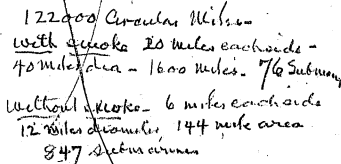 122000 Circular Miles
with smoke 20 miles each side -
40 miles dia - 1600 miles - 76 Submarn
without smoke - 6 miles each side
12 miles diameter 144 mile area
847 submarines